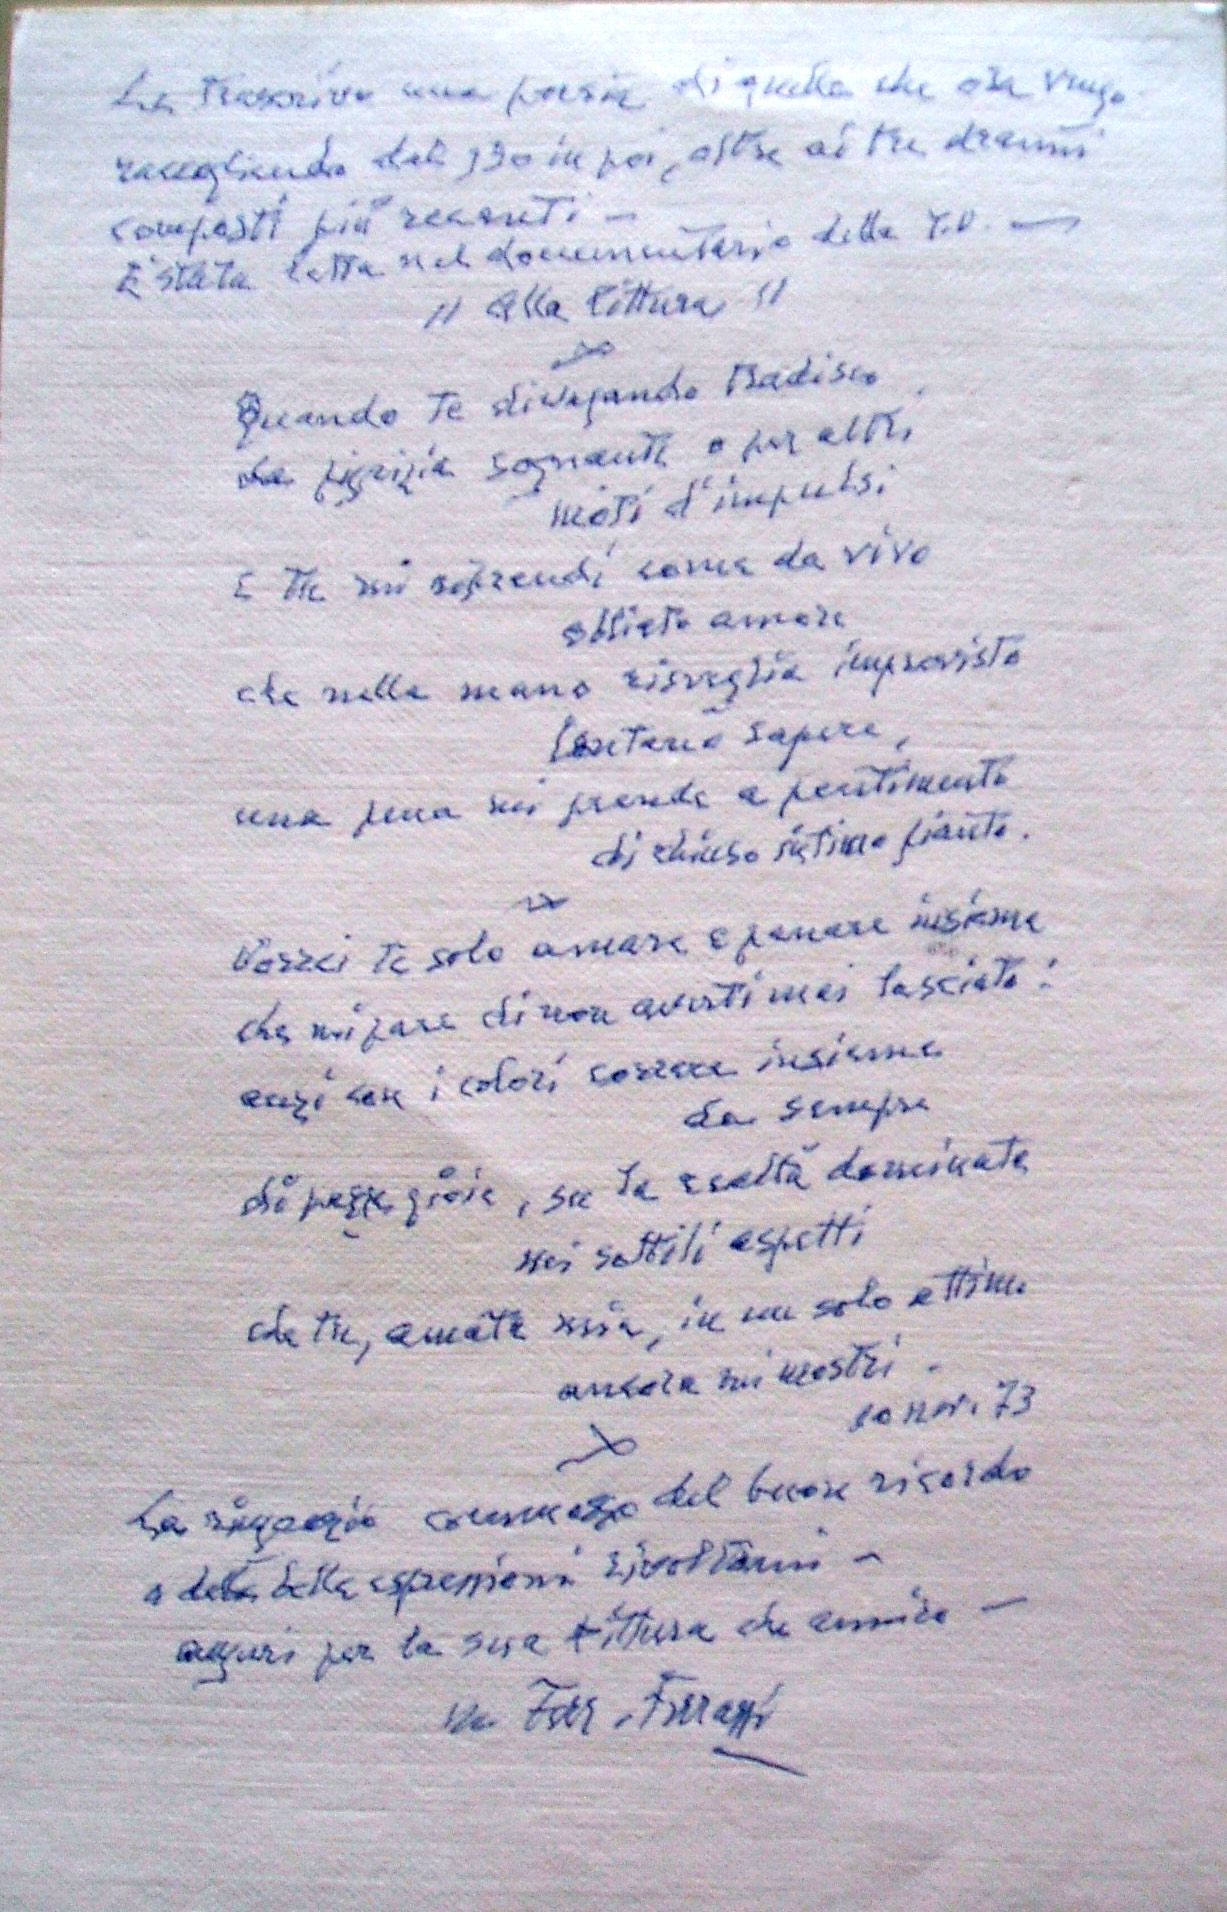 Le trascrivo una poesia di quelle che ora vengo
raccogliendo dal 930 in poi, oltre ai tre drammi
composti più recenti —
E' stata letta nel documentario della T.V. —
" Alla Pittura "
Quando te divagando tradisco
da pigrizia sognante o per altri
moti d'impulsi
e tu mi riprendi come da vivo
obliato amore
che nella mano risveglia improvisto
lontano sapere,
una pena mi prende a pentimento
di chiuso intimo pianto.
Vorrei te solo amare e penare insieme
che mi pare di non averti mai lasciato:
anzi con i colori correre insieme
da sempre
di pazza gioia, su la realtà dominata
nei sottili aspetti
che tu, amata mia, in un solo attimo
ancora mi mostri.
nov. 73
La ringrazio commosso del buon ricordo
e delle belle espressioni rivoltemi —
auguri per la sua pittura che ammiro —
Ferr. Ferrazzi